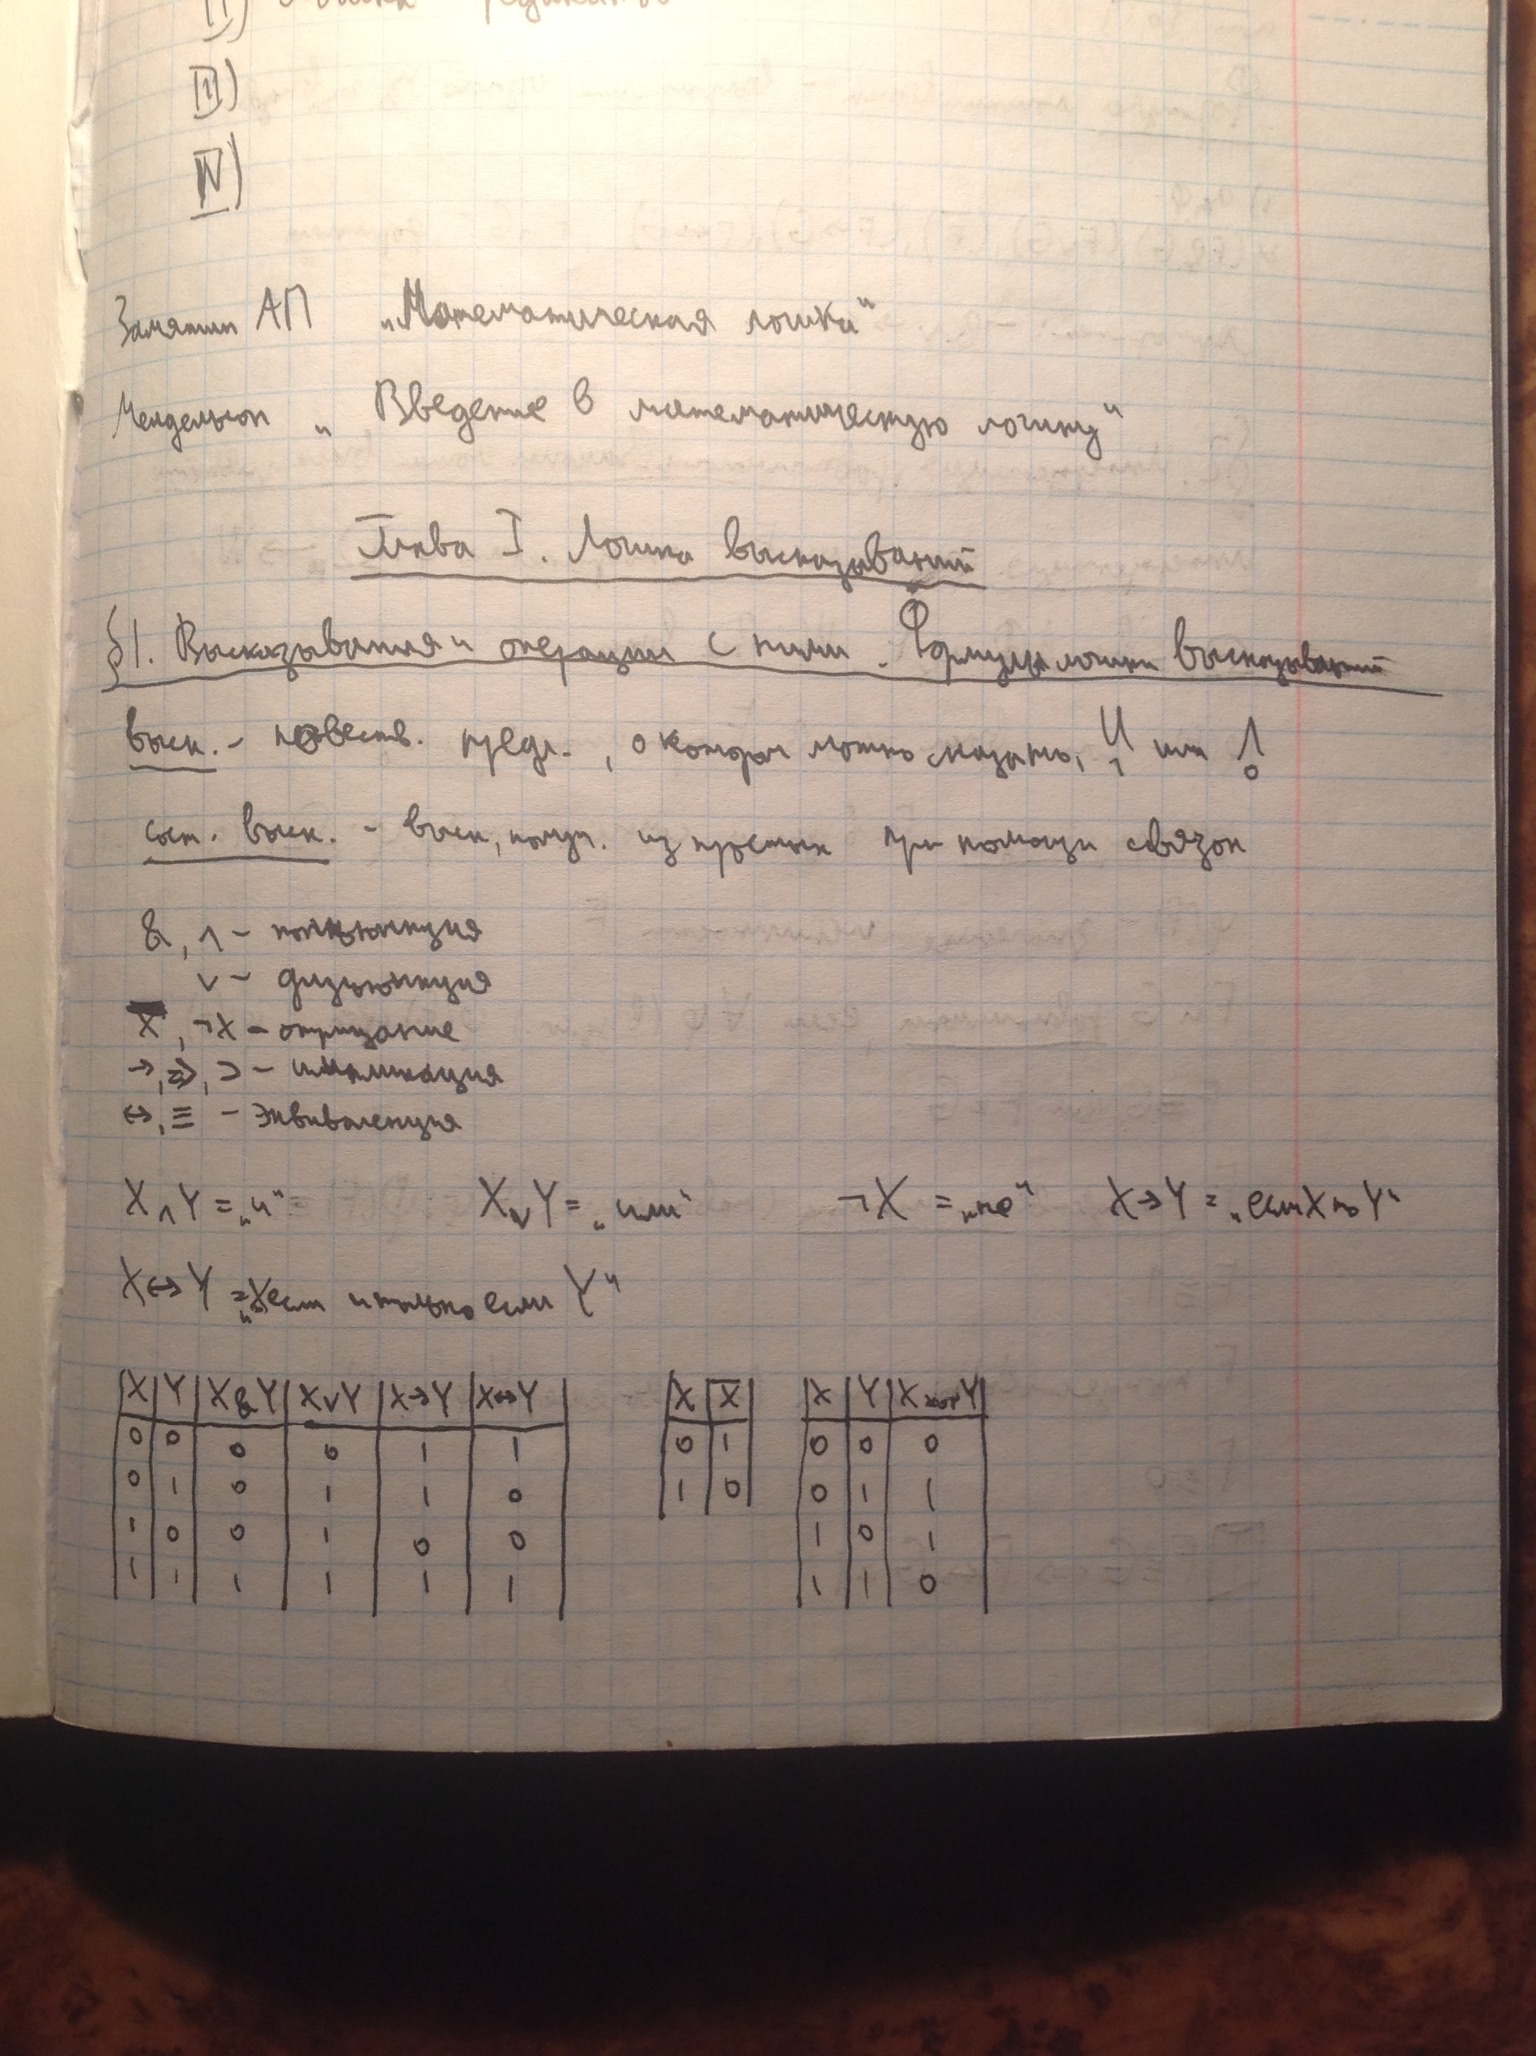 III)
IV)
Замятин АП „Математическая логика“
Мендельсон „Введение в математическую логику“
Глава I. Логика высказываний
§1. Высказывания и операции с ними. Формулы логики высказываний
выск. - повеств. предл., о котором можно сказать, И или Л
1 0
сост. выск. - выск, получ. из простых при помощи связок
&, ∧ - конъюнкция
∨ - дизъюнкция
X̅, ¬X - отрицание
→, ⇒, ⊃ - импликация
↔, ≡ - эквиваленция
X∧Y = „и“ X∨Y = „или“ ¬X = „не“ X→Y = „если X то Y“
X↔Y = „X если и только если Y“
X Y X&Y X∨Y X→Y X↔Y X X̅ X Y X xor Y
0 0 0 0 1 1 0 1 0 0 0
0 1 0 1 1 0 1 0 0 1 1
1 0 0 1 0 0 1 0 1
1 1 1 1 1 1 1 1 0